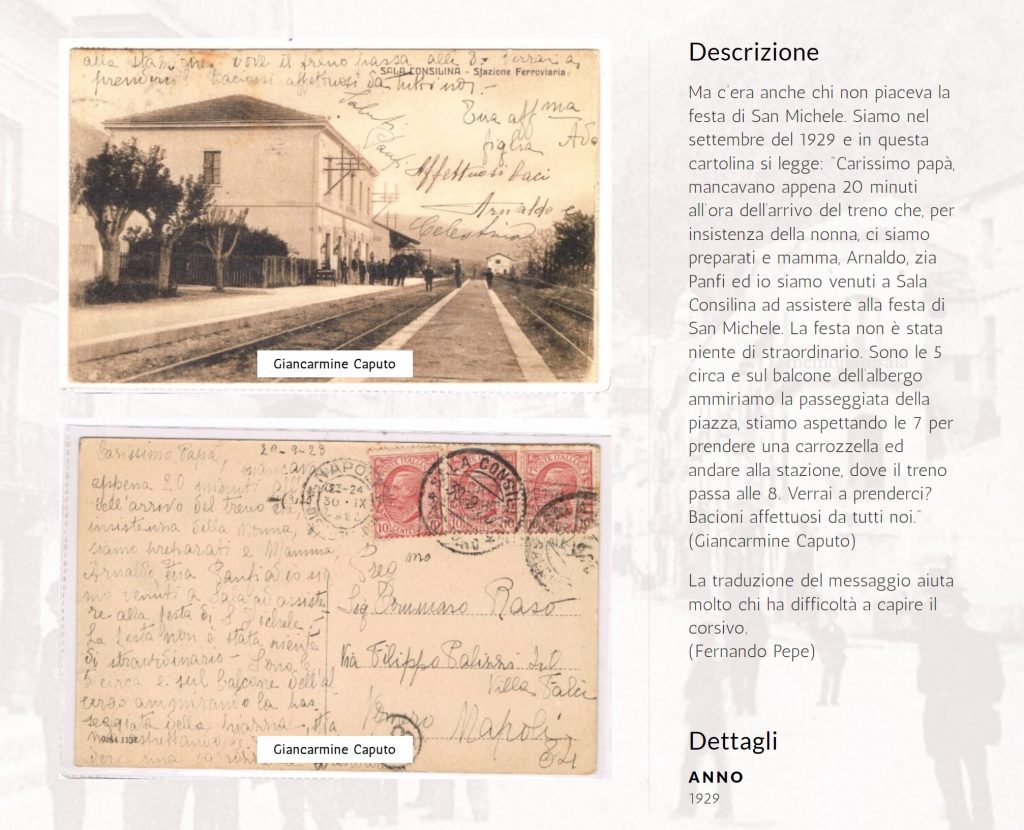 alla stazione, dove il treno passa alle 8. Verrai a
prenderci? Bacioni affettuosi da tutti noi. -
SALA CONSILINA - Stazione Ferroviaria
Saluti
Panfi
Tua aff.ma
figlia Ada
Affettuosi baci
Arnaldo e
Celestina
Giancarmine Caputo
Carissimo Papà, 29-9-29
mancavano
appena 20 minuti all'
dell'arrivo del treno che,
insistenza della Nonna,
siamo preparati e Mamma,
Arnaldo, Zia Panfi ed io sia
mo venuti a Sala ad assiste
re alla festa di S. Michele.
La festa non è stata niente
di straordinario - Sono le
5 circa e sul balcone dell'al
bergo ammiriamo la pas
seggiata della piazza, stia
aspettando le 7
dere una
NAPOLI
23-24
30 · IX
POSTE ITALIANE
10 CENT
SALA CONSILINA
Greg mo
Sig. Tommaso Raso
Via Filippo Palizzi
Villa Falci
Vomero Napoli
Giancarmine Caputo
Descrizione
Ma c'era anche chi non piaceva la
festa di San Michele. Siamo nel
settembre del 1929 e in questa
cartolina si legge: "Carissimo papà,
mancavano appena 20 minuti
all'ora dell'arrivo del treno che, per
insistenza della nonna, ci siamo
preparati e mamma, Arnaldo, zia
Panfi ed io siamo venuti a Sala
Consilina ad assistere alla festa di
San Michele. La festa non è stata
niente di straordinario. Sono le 5
circa e sul balcone dell'albergo
ammiriamo la passeggiata della
piazza, stiamo aspettando le 7 per
prendere una carrozzella ed
andare alla stazione, dove il treno
passa alle 8. Verrai a prenderci?
Bacioni affettuosi da tutti noi."
(Giancarmine Caputo)
La traduzione del messaggio aiuta
molto chi ha difficoltà a capire il
corsivo.
(Fernando Pepe)
Dettagli
ANNO
1929